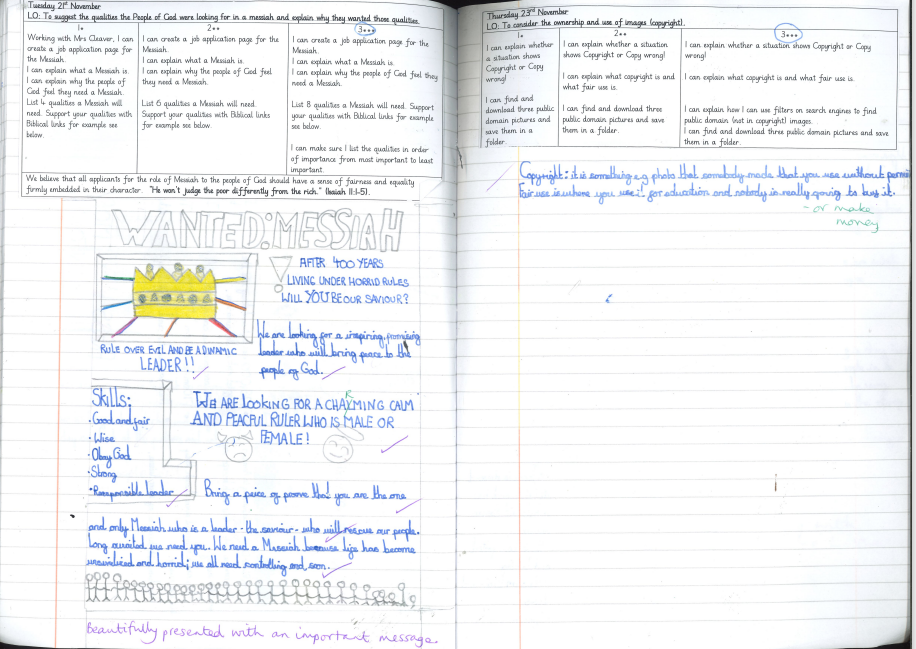 Tuesday 21st November
LO: To suggest the qualities the People of God were looking for in a messiah and explain why they wanted those qualities.
1•
Working with Mrs Cleaver, I can
create a job application page for
the Messiah.
I can explain what a Messiah is.
I can explain why the people of
God feel they need a Messiah.
List 4 qualities a Messiah will
need. Support your qualities with
Biblical links for example see
below.
2••
I can create a job application page for the
Messiah.
I can explain what a Messiah is.
I can explain why the people of God feel
they need a Messiah.
List 6 qualities a Messiah will need.
Support your qualities with Biblical links
for example see below.
3•••
I can create a job application page for the
Messiah.
I can explain what a Messiah is.
I can explain why the people of God feel they
need a Messiah.
List 8 qualities a Messiah will need. Support
your qualities with Biblical links for example
see below.
I can make sure I list the qualities in order
of importance from most important to least
important.
We believe that all applicants for the role of Messiah to the people of God should have a sense of fairness and equality
firmly embedded in their character. "He won't judge the poor differently from the rich." (Isaiah 11:1-5).
WANTED: MESSIAH
AFTER 400 YEARS
LIVING UNDER HORRID RULES
WILL YOU BE OUR SAVIOUR?
RULE OVER EVIL AND BE A DINAMIC
LEADER!!
We are looking for a inspiring, promising
leader who will bring peace to the
people of God.
Skills:
•Good and fair
•Wise
•Obay God
•Strong
•Responsible leader
WE ARE LOOKING FOR A CHAYMING CALM
AND PEACFUL RULER WHO IS MALE OR
FEMALE!
Bring a peice of proove that you are the one
and only Messiah who is a leader - the saviour - who will rescue our people.
Long awaited we need you. We need a Messiah because life has become
and horrid; we all need controlling and soon.
Beautifully presented with an important message.
Thursday 23rd November
LO: To consider the ownership and use of images (copyright).
1•
I can explain whether
a situation shows
Copyright or Copy
wrong!
I can find and
download three public
domain pictures and
save them in a
folder.
2••
I can explain whether a situation
shows Copyright or Copy wrong!
I can explain what copyright is and
what fair use is.
I can find and download three
public domain pictures and save
them in a folder.
3•••
I can explain whether a situation shows Copyright or Copy
wrong!
I can explain what copyright is and what fair use is.
I can explain how I can use filters on search engines to find
public domain (not in copyright) images.
I can find and download three public domain pictures and save
them in a folder.
Copyright: it is something e.g photo that somebody made that you use without permi
Fair use is where you use it for education and nobody is really going to buy it.
- or make
money